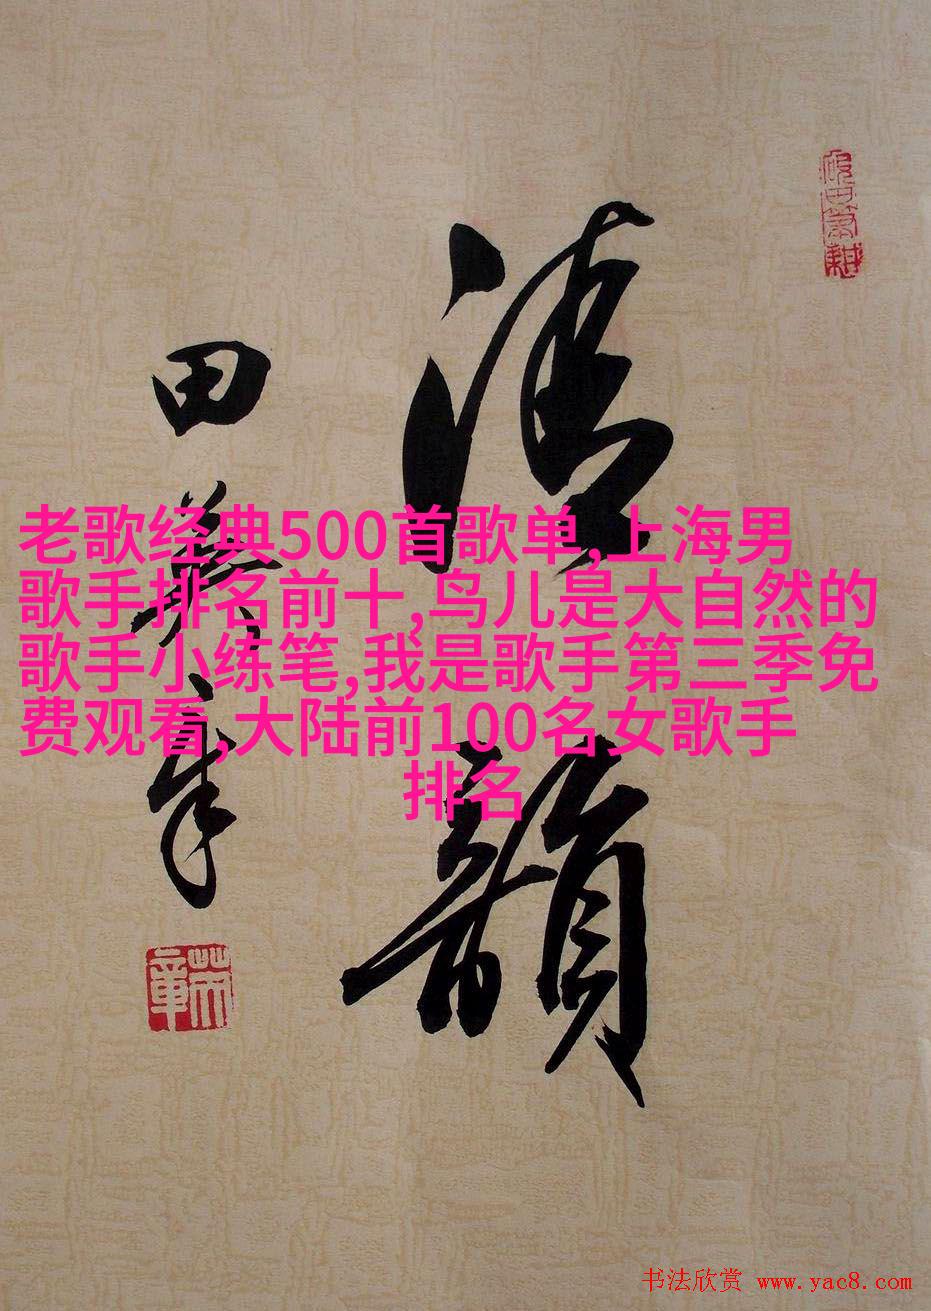 清韻
田英章
老歌经典500首歌单,上海男
歌手排名前十,鸟儿是大自然的
歌手小练笔,我是歌手第三季免
费观看,大陆前100名女歌手
排名
英章
书法欣赏 www.yac8.com